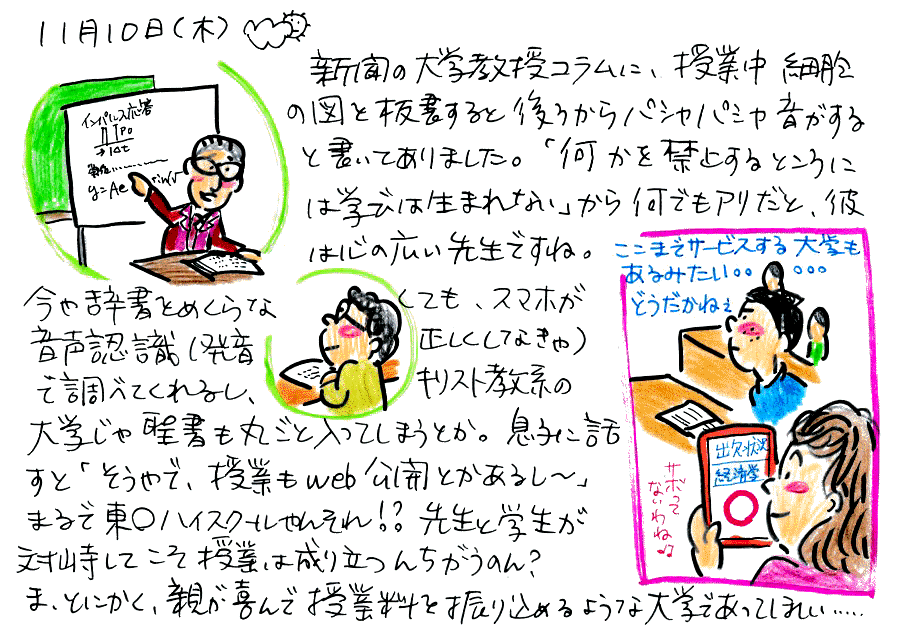 11月10日(木)
新聞の大学教授コラムに、授業中 細胞
の図を板書すると後ろからパシャパシャ音がする
と書いてありました。「何かを禁止するところに
は学びは生まれない」から何でもアリだと、彼
は心の広い先生ですね。
インパルス応答
Po
Δt
y=Ae sin
今や辞書をめくらな くても、スマホが
音声認識(発音 正しくしてなきゃ)
で調べてくれるし、 キリスト教系の
大学じゃ聖書も丸ごと入ってしまうとか。息子に話
すと「そうやで、授業もweb公開とかあるし〜」
まるで東〇ハイスクールやんそれ!?先生と学生が
対峙してこそ授業は成り立つんちがうのん?
ま、とにかく、親が喜んで授業料を振り込めるような大学であってほしい……
ここまでサービスする大学も
あるみたい‥ …
どうだかねぇ
出欠状況
経済学
サボって
ないわね♪